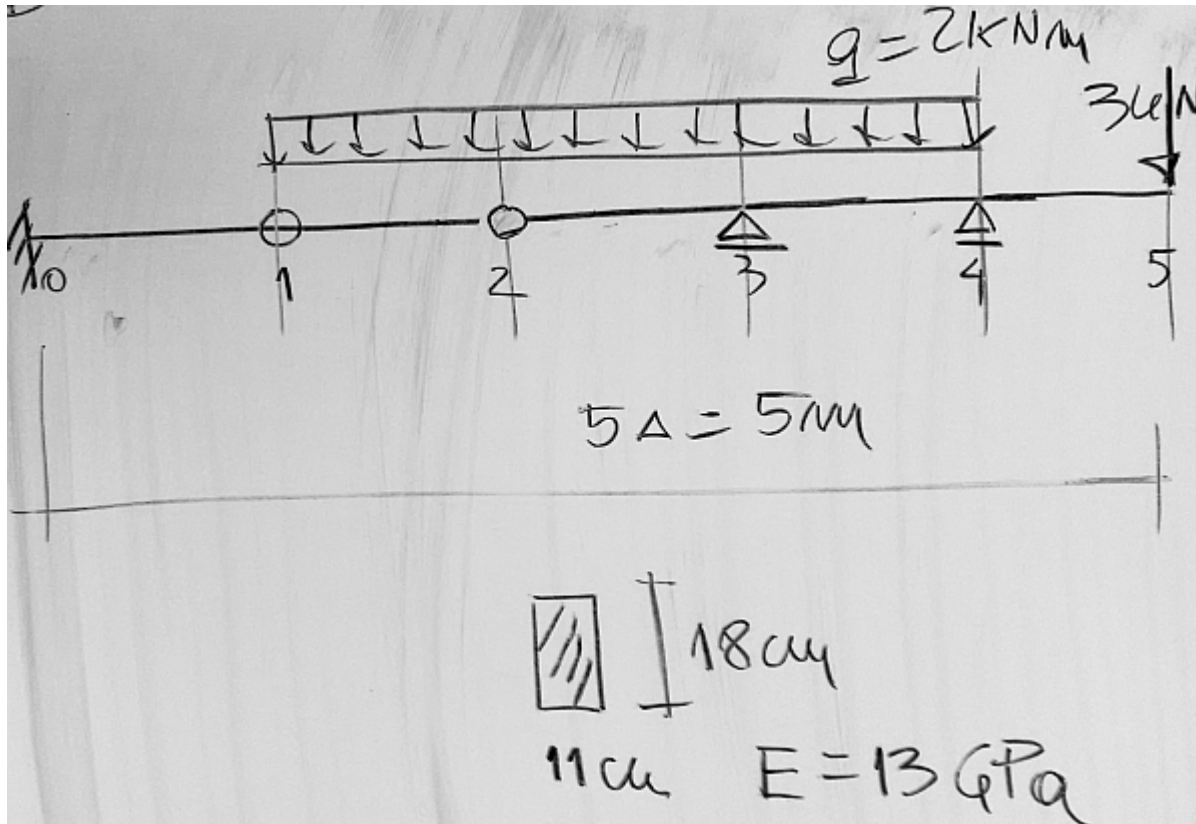 q = 2kNm
3kN
0
1
2
3
4
5
5Δ = 5m
18cm
11cm
E = 13 GPa